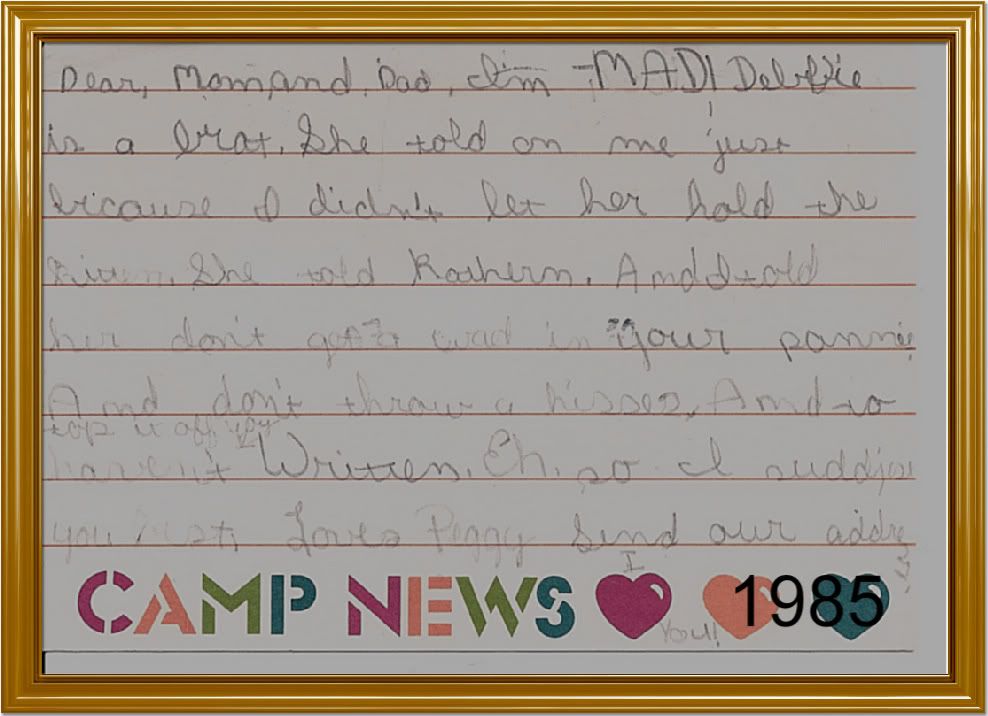 Dear, Mom,and Dad, I'm -MAD! Debbie
is a brat. She told on me just
because I didn't let her hold the
She told Kathern. And I told
her don't get a wad in your pannie
And don't throw a hisses, And to
top it off you
haven't Written. Eh. so I
you Loves Peggy Send our addre
ss
CAMP NEWS I
You!
1985